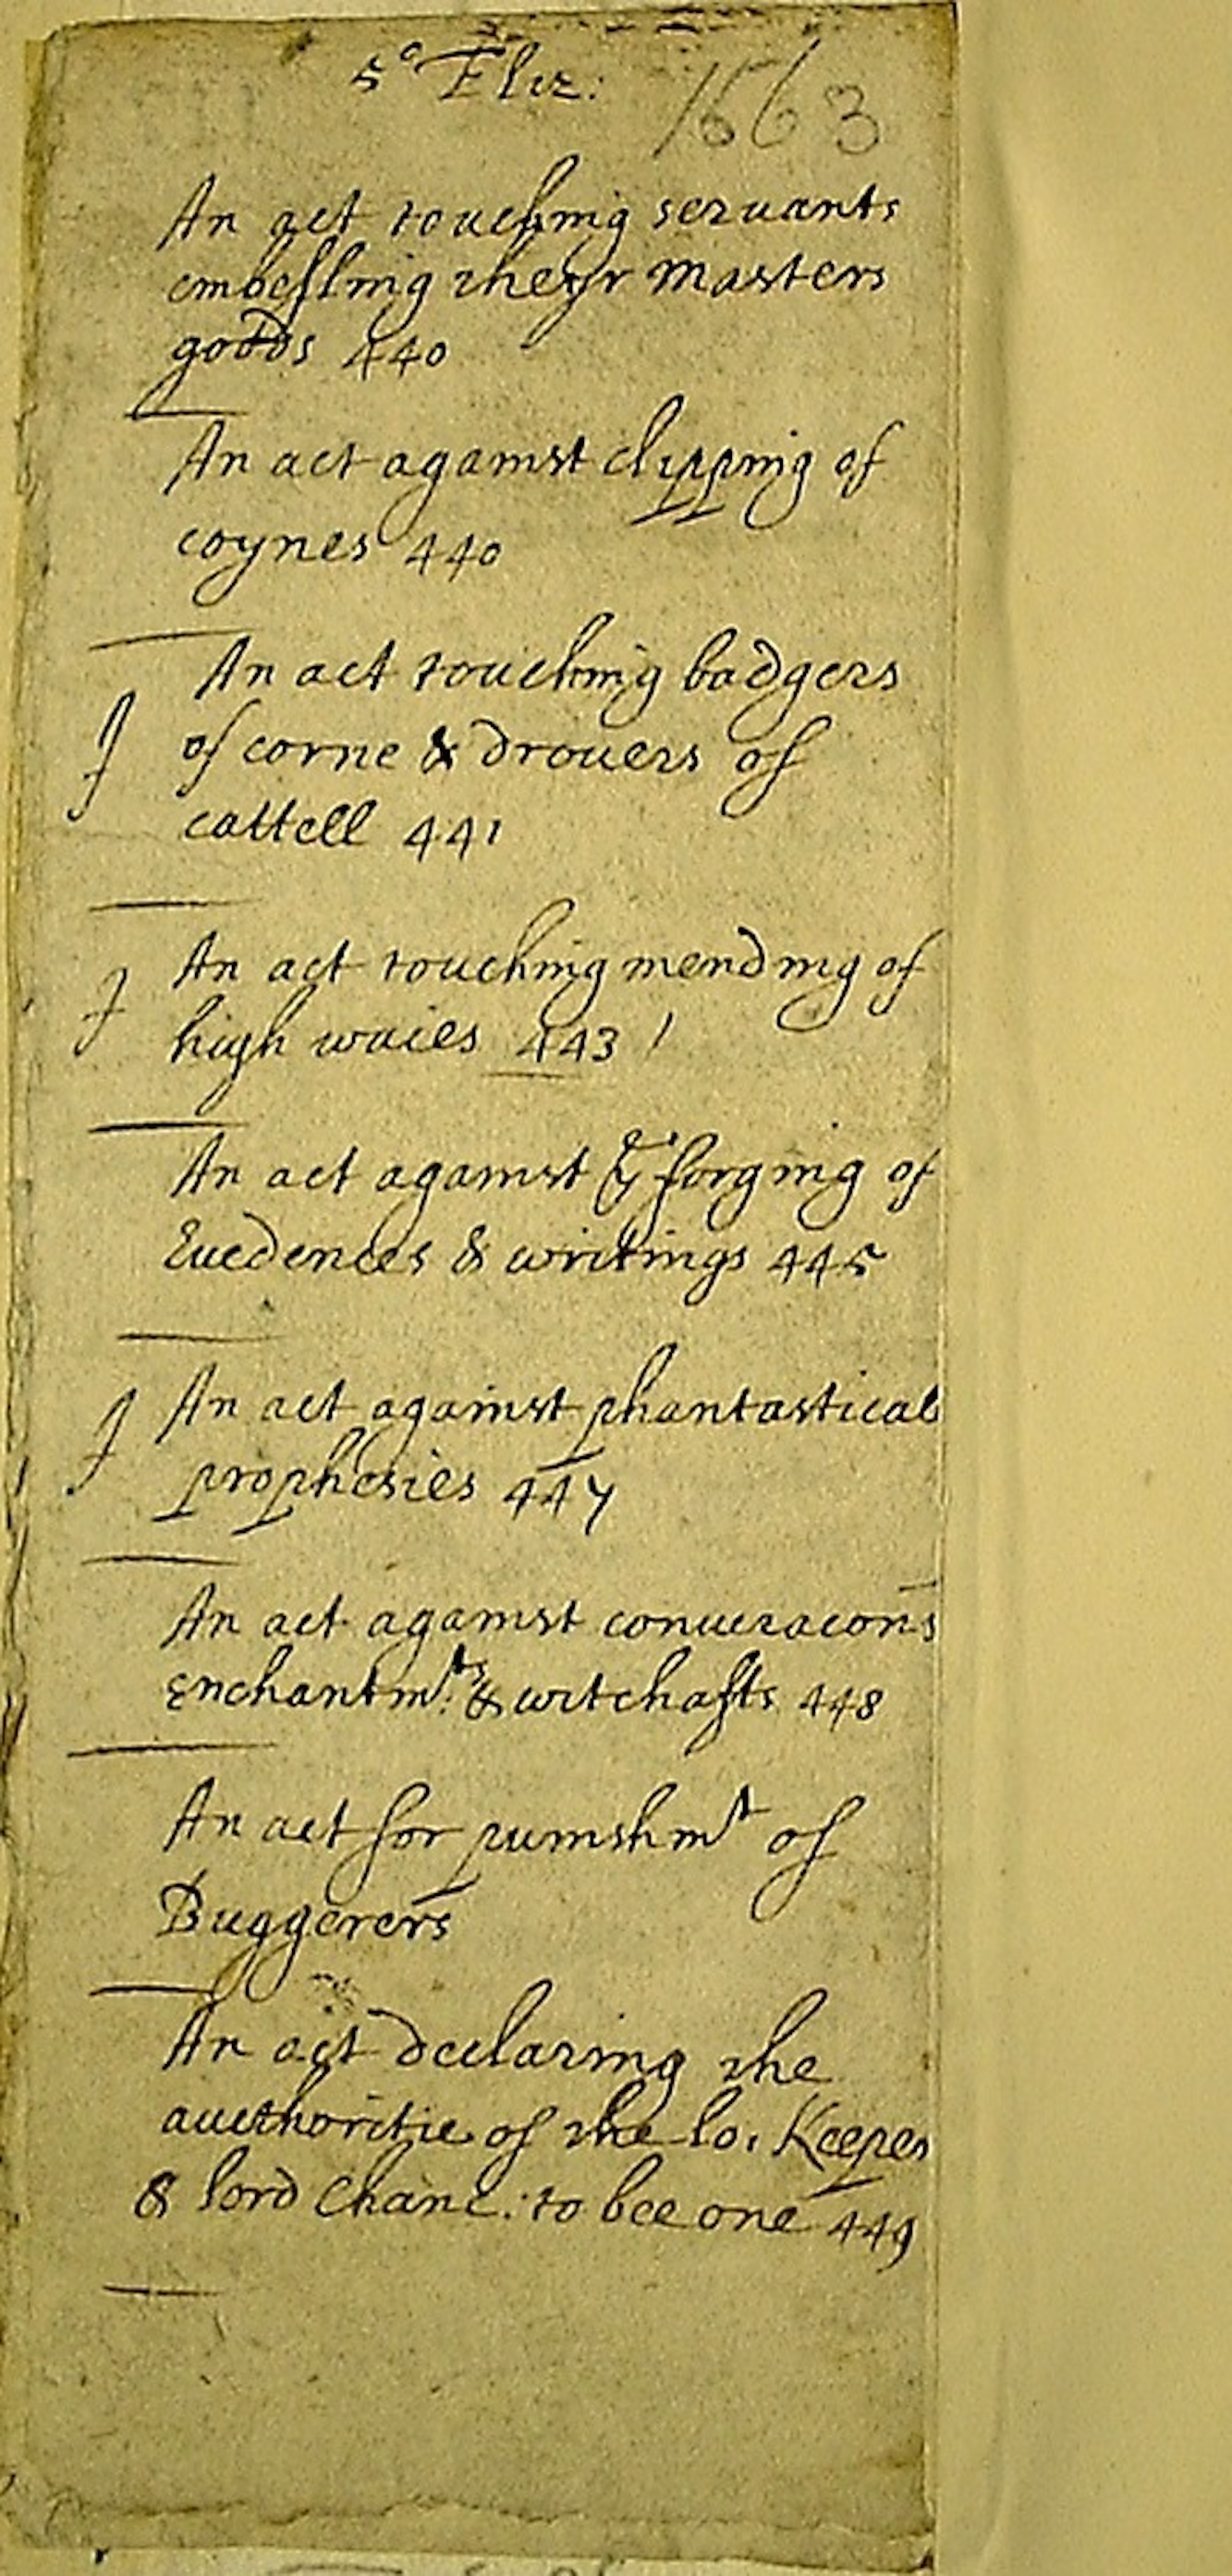 5° Eliz: 1563
An act touching seruants
embesling theyr masters
goods 440
An act against clipping of
coynes 440
An act touching badgers
of corne & drouers of
cattell 441
An act touching mending of
high waies 443
An act against yͤ forging of
Euedences & writings 445
An act against phantastical
prophesies 447
An act against conueracons
enchantmᵗˢ & witchafts 448
An act for punishmᵗ of
Buggerers
An act declaring the
aucthoritie of the lo. Keeper
& lord Chanc: to bee one 449